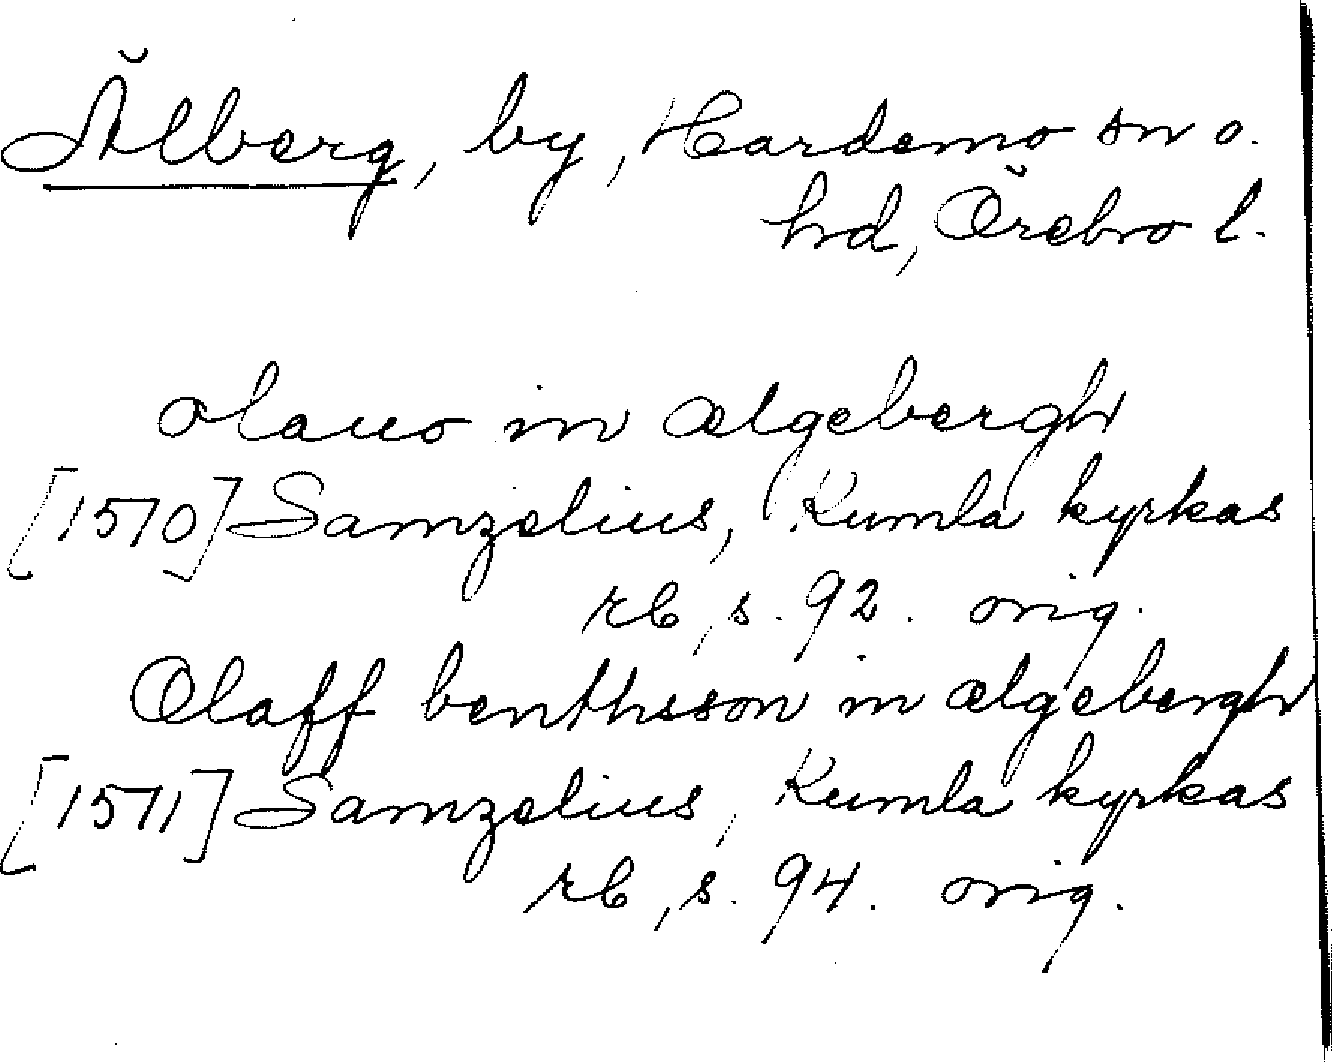 Älberg, by, Hardemo sn o.
hd, Örebro l.
olauo in ælgebergh
[1570] Samzelius, Kumla kyrkas
rb, s. 92. orig.
Olaff benthsson in ælgebergh
[1571] Samzelius, Kumla kyrkas
rb, s. 94. orig.